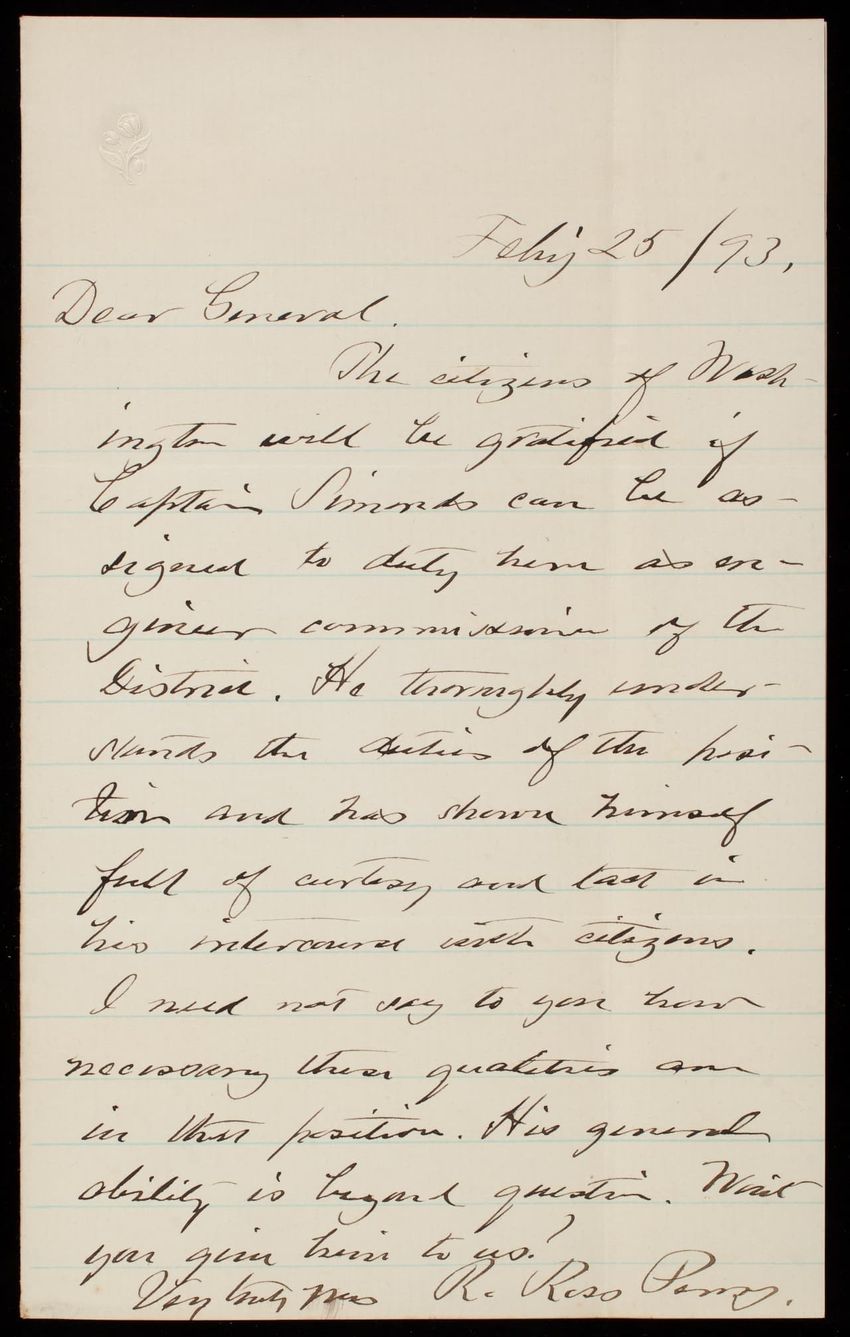 Feb'y 25/93,
Dear General.
The citizens of Wash-
ington will be gratified if
Captain Simonds can be as-
signed to duty here as en-
gineer commissioner of the
District. He thoroughly under-
stands the duties of the posi-
tion and has shown himself
full of courtesy and tact in
his intercourse with citizens.
I need not say to you how
necessary these qualities are
in that position. His general
ability is beyond question. Wont
you give him to us?
Very truly yours R. Ross Perry.